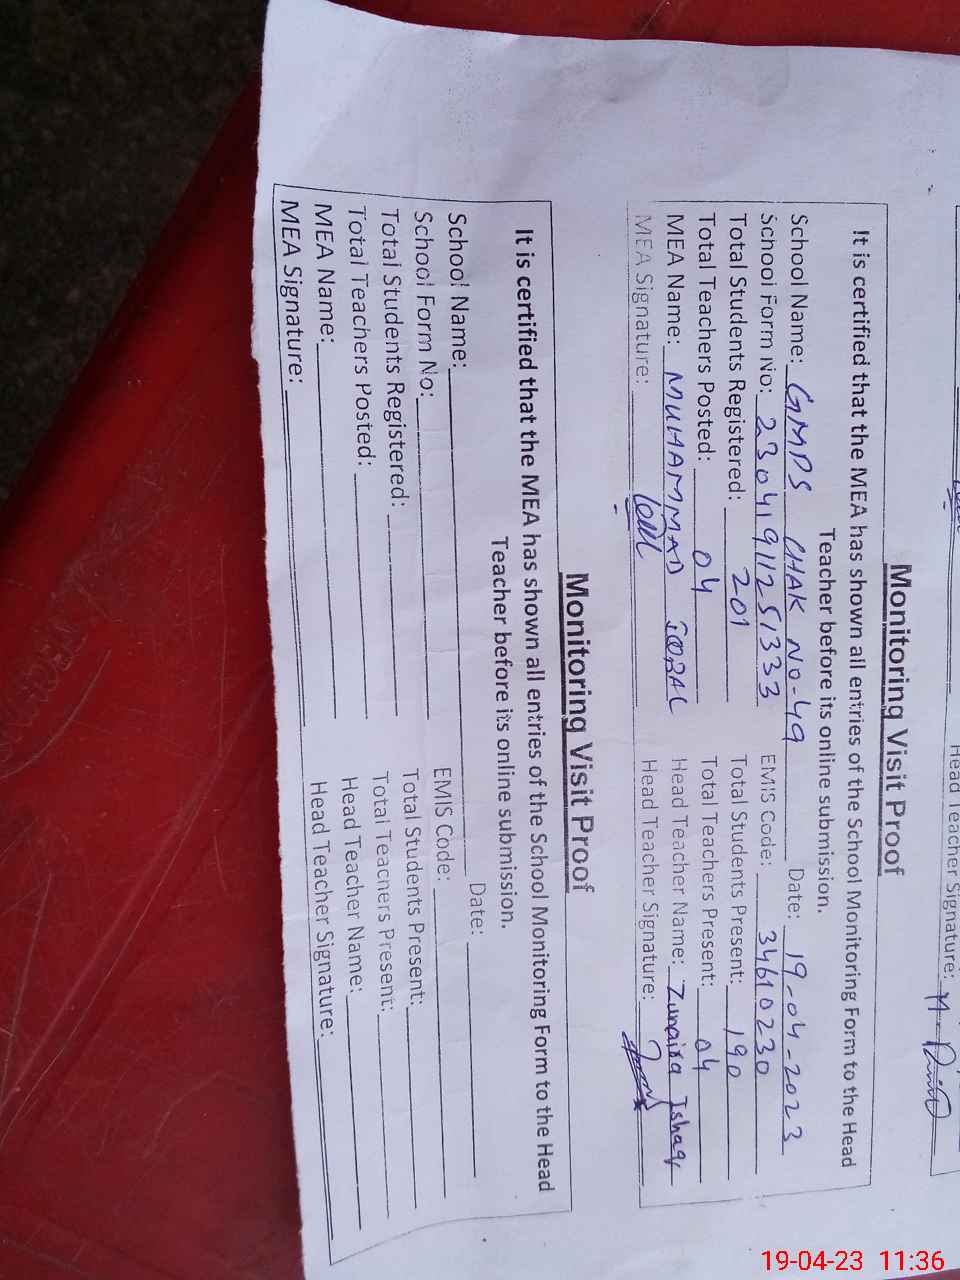 Head Teacher Signature:
Monitoring Visit Proof
It is certified that the MEA has shown all entries of the School Monitoring Form to the Head
Teacher before its online submission.
School Name: GMPS CHAK NO-49 Date: 19-04-2023
School Form No: 23041911251333 EMIS Code: 34610230
Total Students Registered: 201 Total Students Present: 190
Total Teachers Posted: 04 Total Teachers Present: 04
MEA Name: MUHAMMAD IQBAL Head Teacher Name: Zunaira Ishaq
MEA Signature: Head Teacher Signature:
Monitoring Visit Proof
It is certified that the MEA has shown all entries of the School Monitoring Form to the Head
Teacher before its online submission.
School Name: Date:
School Form No: EMIS Code:
Total Students Registered: Total Students Present:
Total Teachers Posted: Total Teachers Present:
MEA Name: Head Teacher Name:
MEA Signature: Head Teacher Signature:
19-04-23 11:36